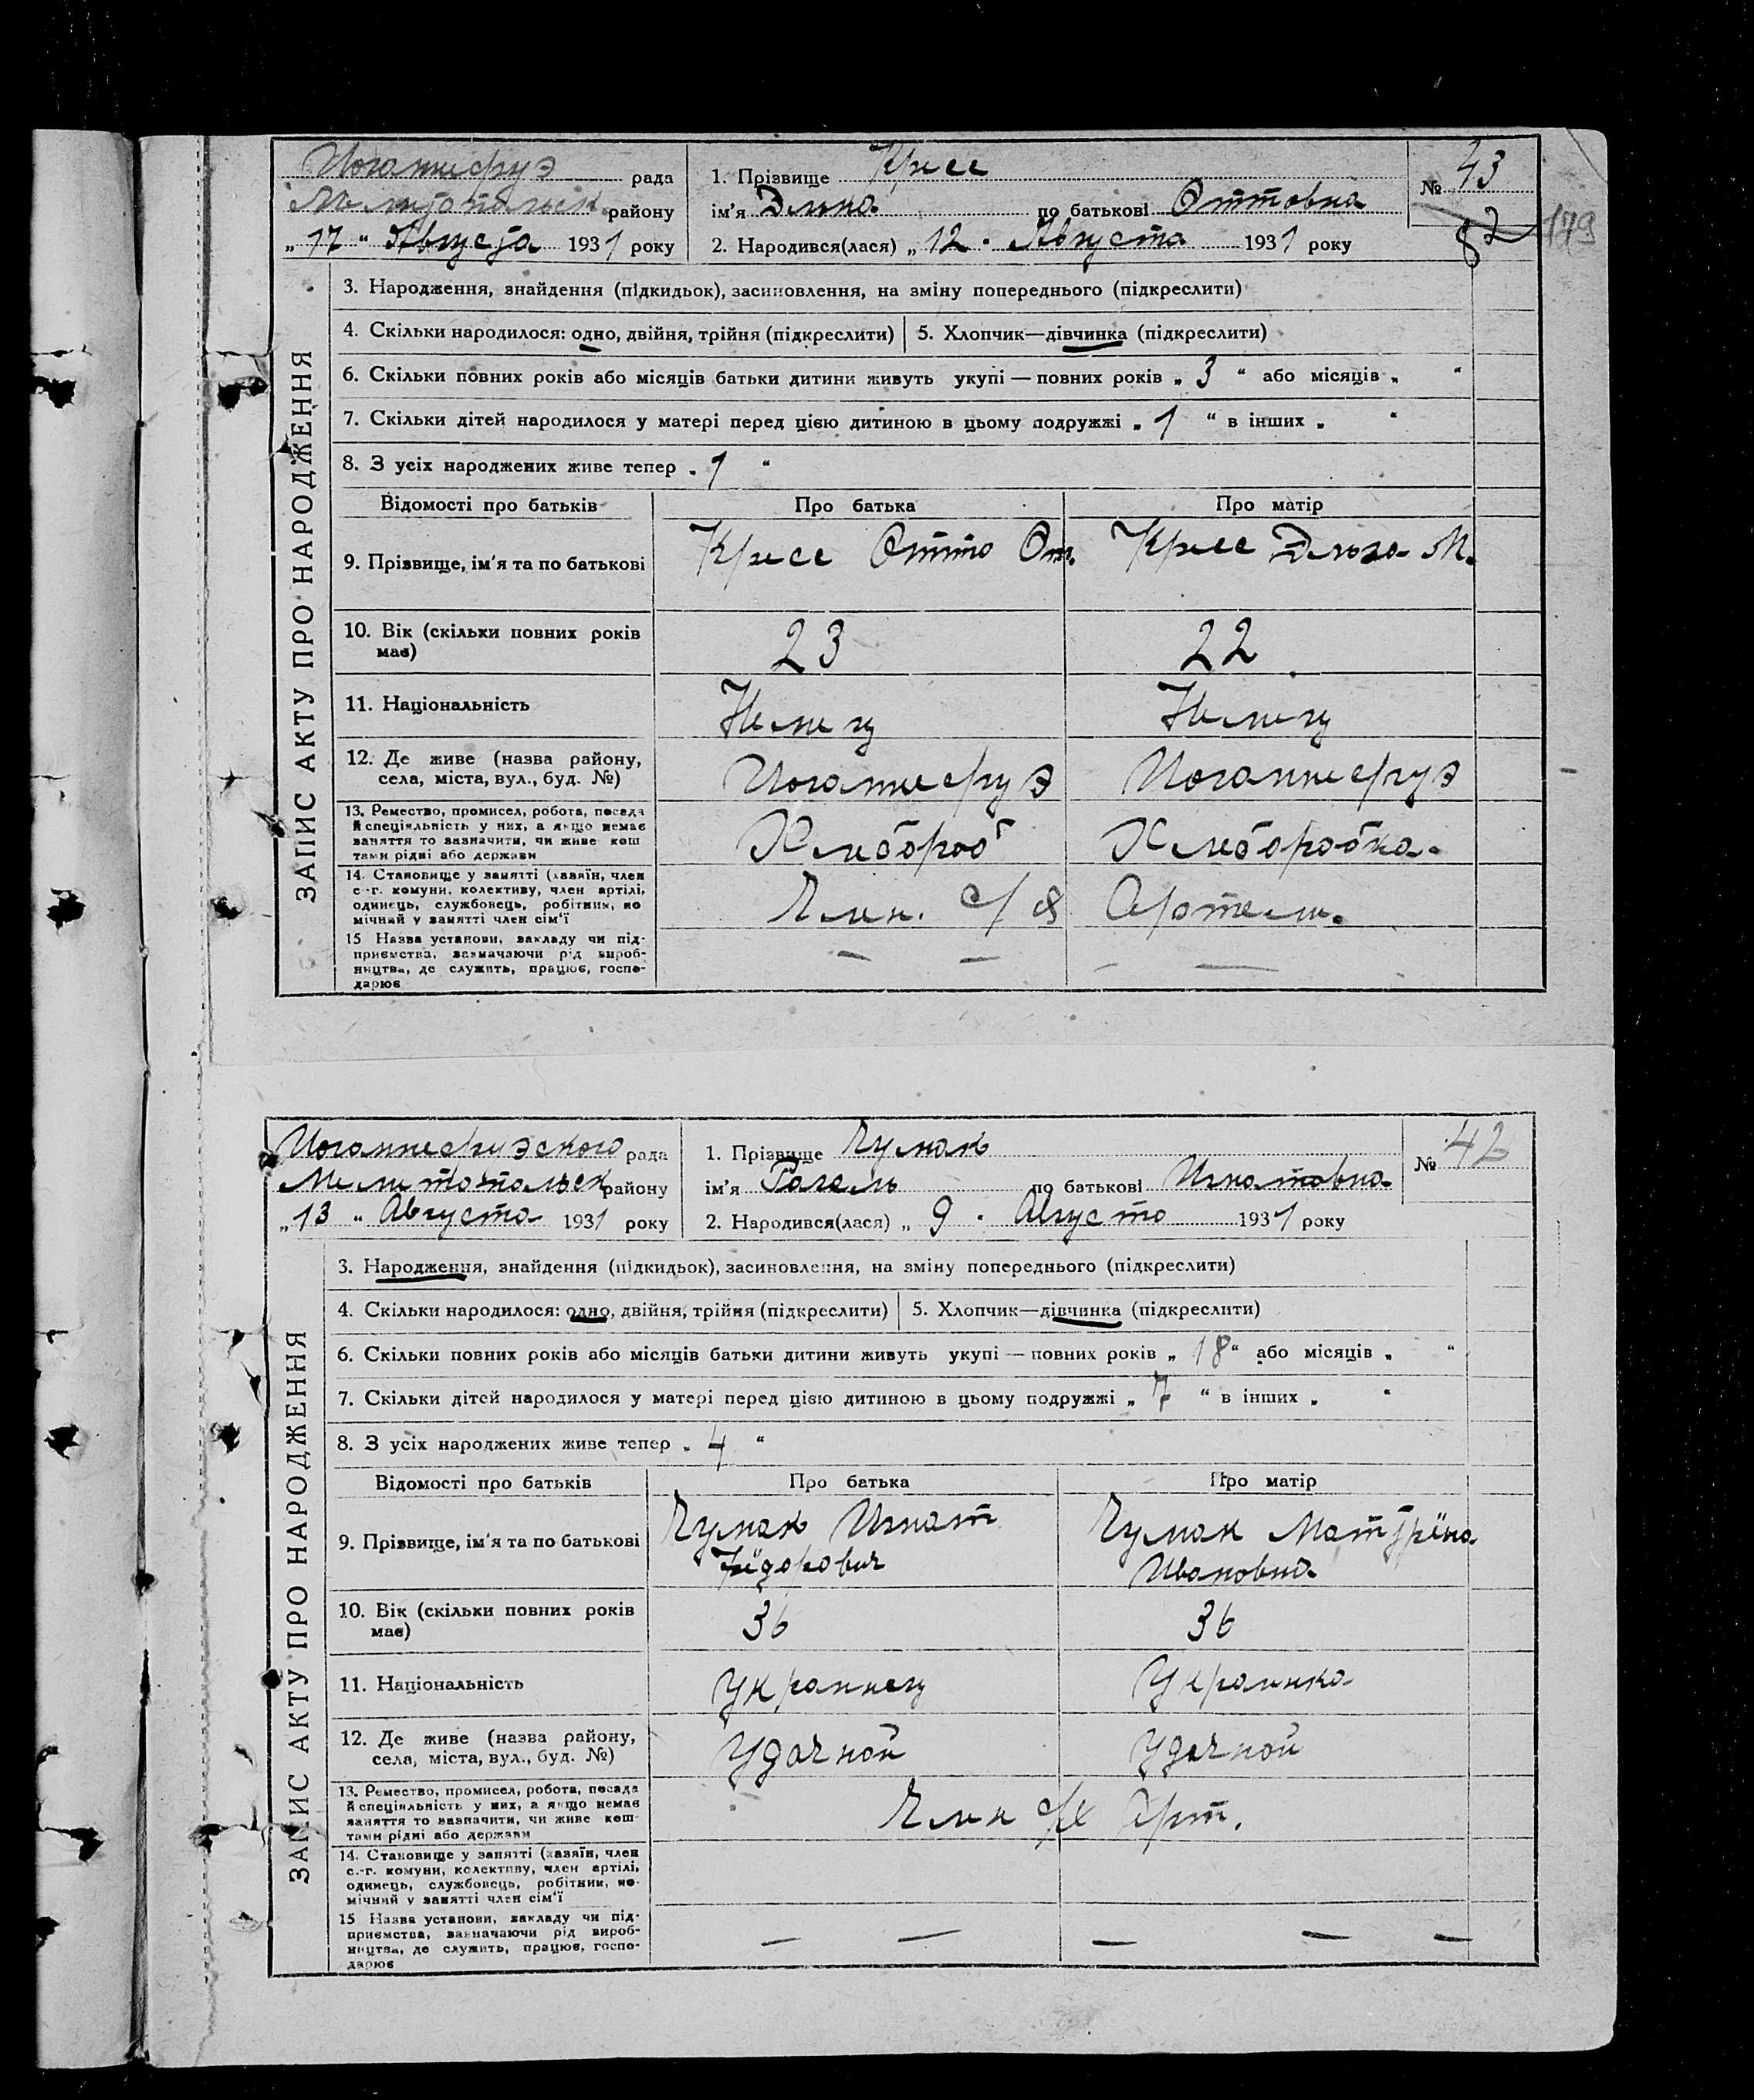 Иоганнесруэ рада
Мелитопольск. району
„17" Августа 1931 року
1. Прізвище Крисс
ім'я Эльна по батькові Оттовна
2. Народився(лася) „12" Августа 1931 року
№ 43
82
179
ЗАПИС АКТУ ПРО НАРОДЖЕННЯ
3. Народження, знайдення (підкидьок), засиновлення, на зміну попереднього (підкреслити)
4. Скільки народилося: одно, двійня, трійня (підкреслити) 5. Хлопчик—дівчинка (підкреслити)
6. Скільки повних років або місяців батьки дитини живуть укупі — повних років „ 3 " або місяців „ "
7. Скільки дітей народилося у матері перед цією дитиною в цьому подружжі „ 1 " в інших „ "
8. З усіх народжених живе тепер „ 1 "
Відомості про батьків Про батька Про матір
9. Прізвище, ім'я та по батькові Крисс Отто От. Крисс Эльза М.
10. Вік (скільки повних років має) 23 22
11. Національність Немец Немец
12. Де живе (назва району, села, міста, вул., буд. №) Иоганнесруэ Иоганнесруэ
13. Ремество, промисел, робота, посада
й спеціяльність у них, а якщо немає
заняття то зазначити, чи живе кош
тами рідні або держави
Хлебороб Хлеборобка.
14. Становище у занятті (хазяїн, член
с.-г. комуни, колективу, член артілі,
одинець, службовець, робітник, по
мічний у занятті член сім'ї
Член. с/х Артели.
15 Назва установи, закладу чи під-
приємства, зазначаючи рід вироб-
ництва, де служить, працює, госпо-
дарює
— — — —
Иоганнесруэского рада
Мелитопольск району
„13" Августа 1931 року
1. Прізвище Чумак
ім'я по батькові Игнатовна
2. Народився(лася) „ 9 " Августа 1931 року
№ 42
ЗАПИС АКТУ ПРО НАРОДЖЕННЯ
3. Народження, знайдення (підкидьок), засиновлення, на зміну попереднього (підкреслити)
4. Скільки народилося: одно, двійня, трійня (підкреслити) 5. Хлопчик—дівчинка (підкреслити)
6. Скільки повних років або місяців батьки дитини живуть укупі — повних років „ 18 " або місяців „ "
7. Скільки дітей народилося у матері перед цією дитиною в цьому подружжі „ 7 " в інших „ "
8. З усіх народжених живе тепер „ 4 "
Відомості про батьків Про батька Про матір
9. Прізвище, ім'я та по батькові Чумак Игнат Чумак Матрёна
Фёдорович Ивановна
10. Вік (скільки повних років має) 36 36
11. Національність Украинец Украинка
12. Де живе (назва району, села, міста, вул., буд. №) Удачной Удачной
13. Ремество, промисел, робота, посада
й спеціяльність у них, а якщо немає
заняття то зазначити, чи живе кош-
тами рідні або держави
Член с/х Арт.
14. Становище у занятті (хазяїн, член
с.-г. комуни, колективу, член артілі,
одинець, службовець, робітник, по-
мічний у занятті член сім'ї
15 Назва установи, закладу чи під-
приємства, зазначаючи рід вироб-
ництва, де служить, працює, госпо-
дарює
— — — — —